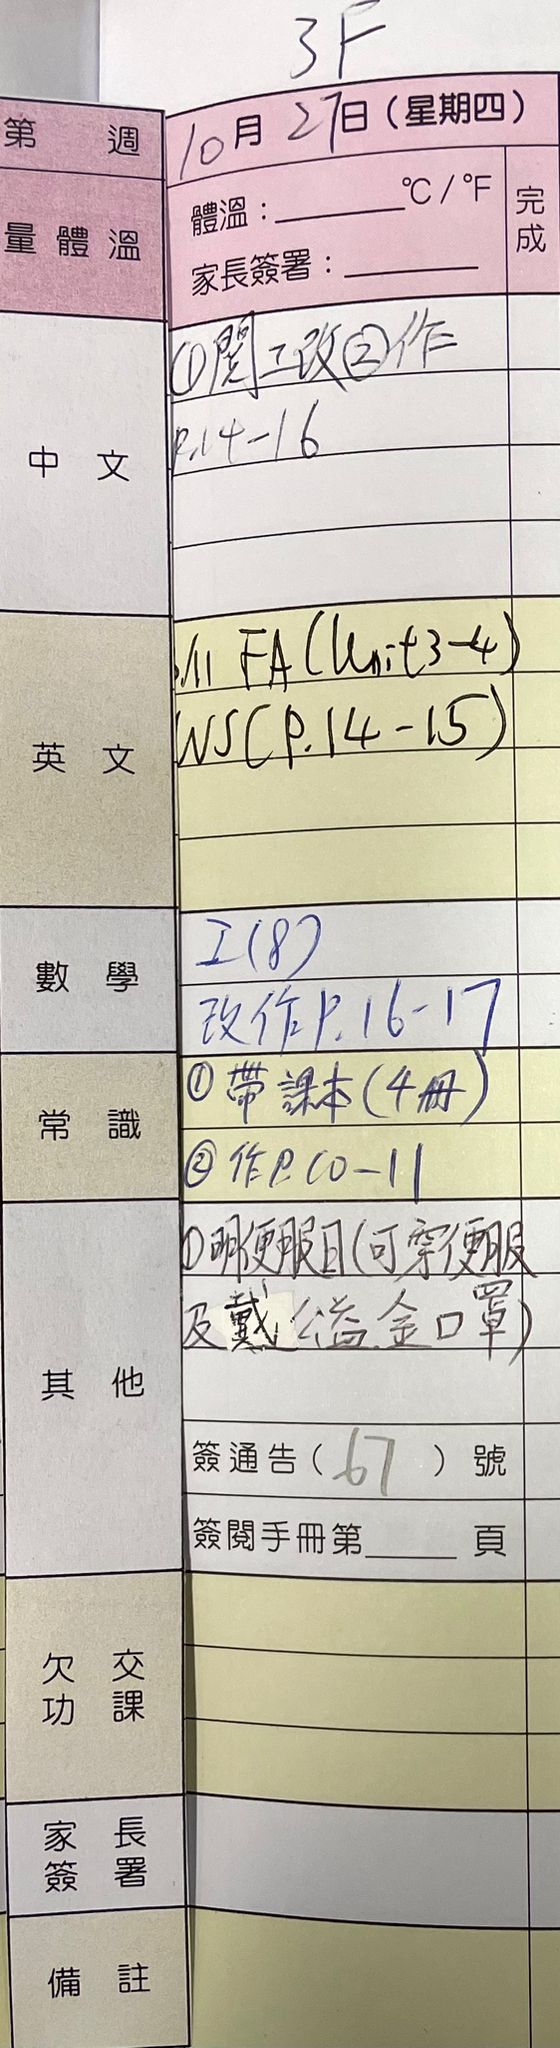 3F
第 週
10月27日(星期四)
量體溫
體溫：______℃/℉
家長簽署：______
完成
中文
①閱工改②作
P.14-16
英文
FA(Unit3-4)
WS(P.14-15)
數學
工(8)
改作P.16-17
常識
①帶課本(4冊)
②作P.10-11
其他
①明便服日(可穿便服
及戴公益金口罩)
簽通告(67)號
簽閱手冊第____頁
欠交
功課
家長
簽署
備註